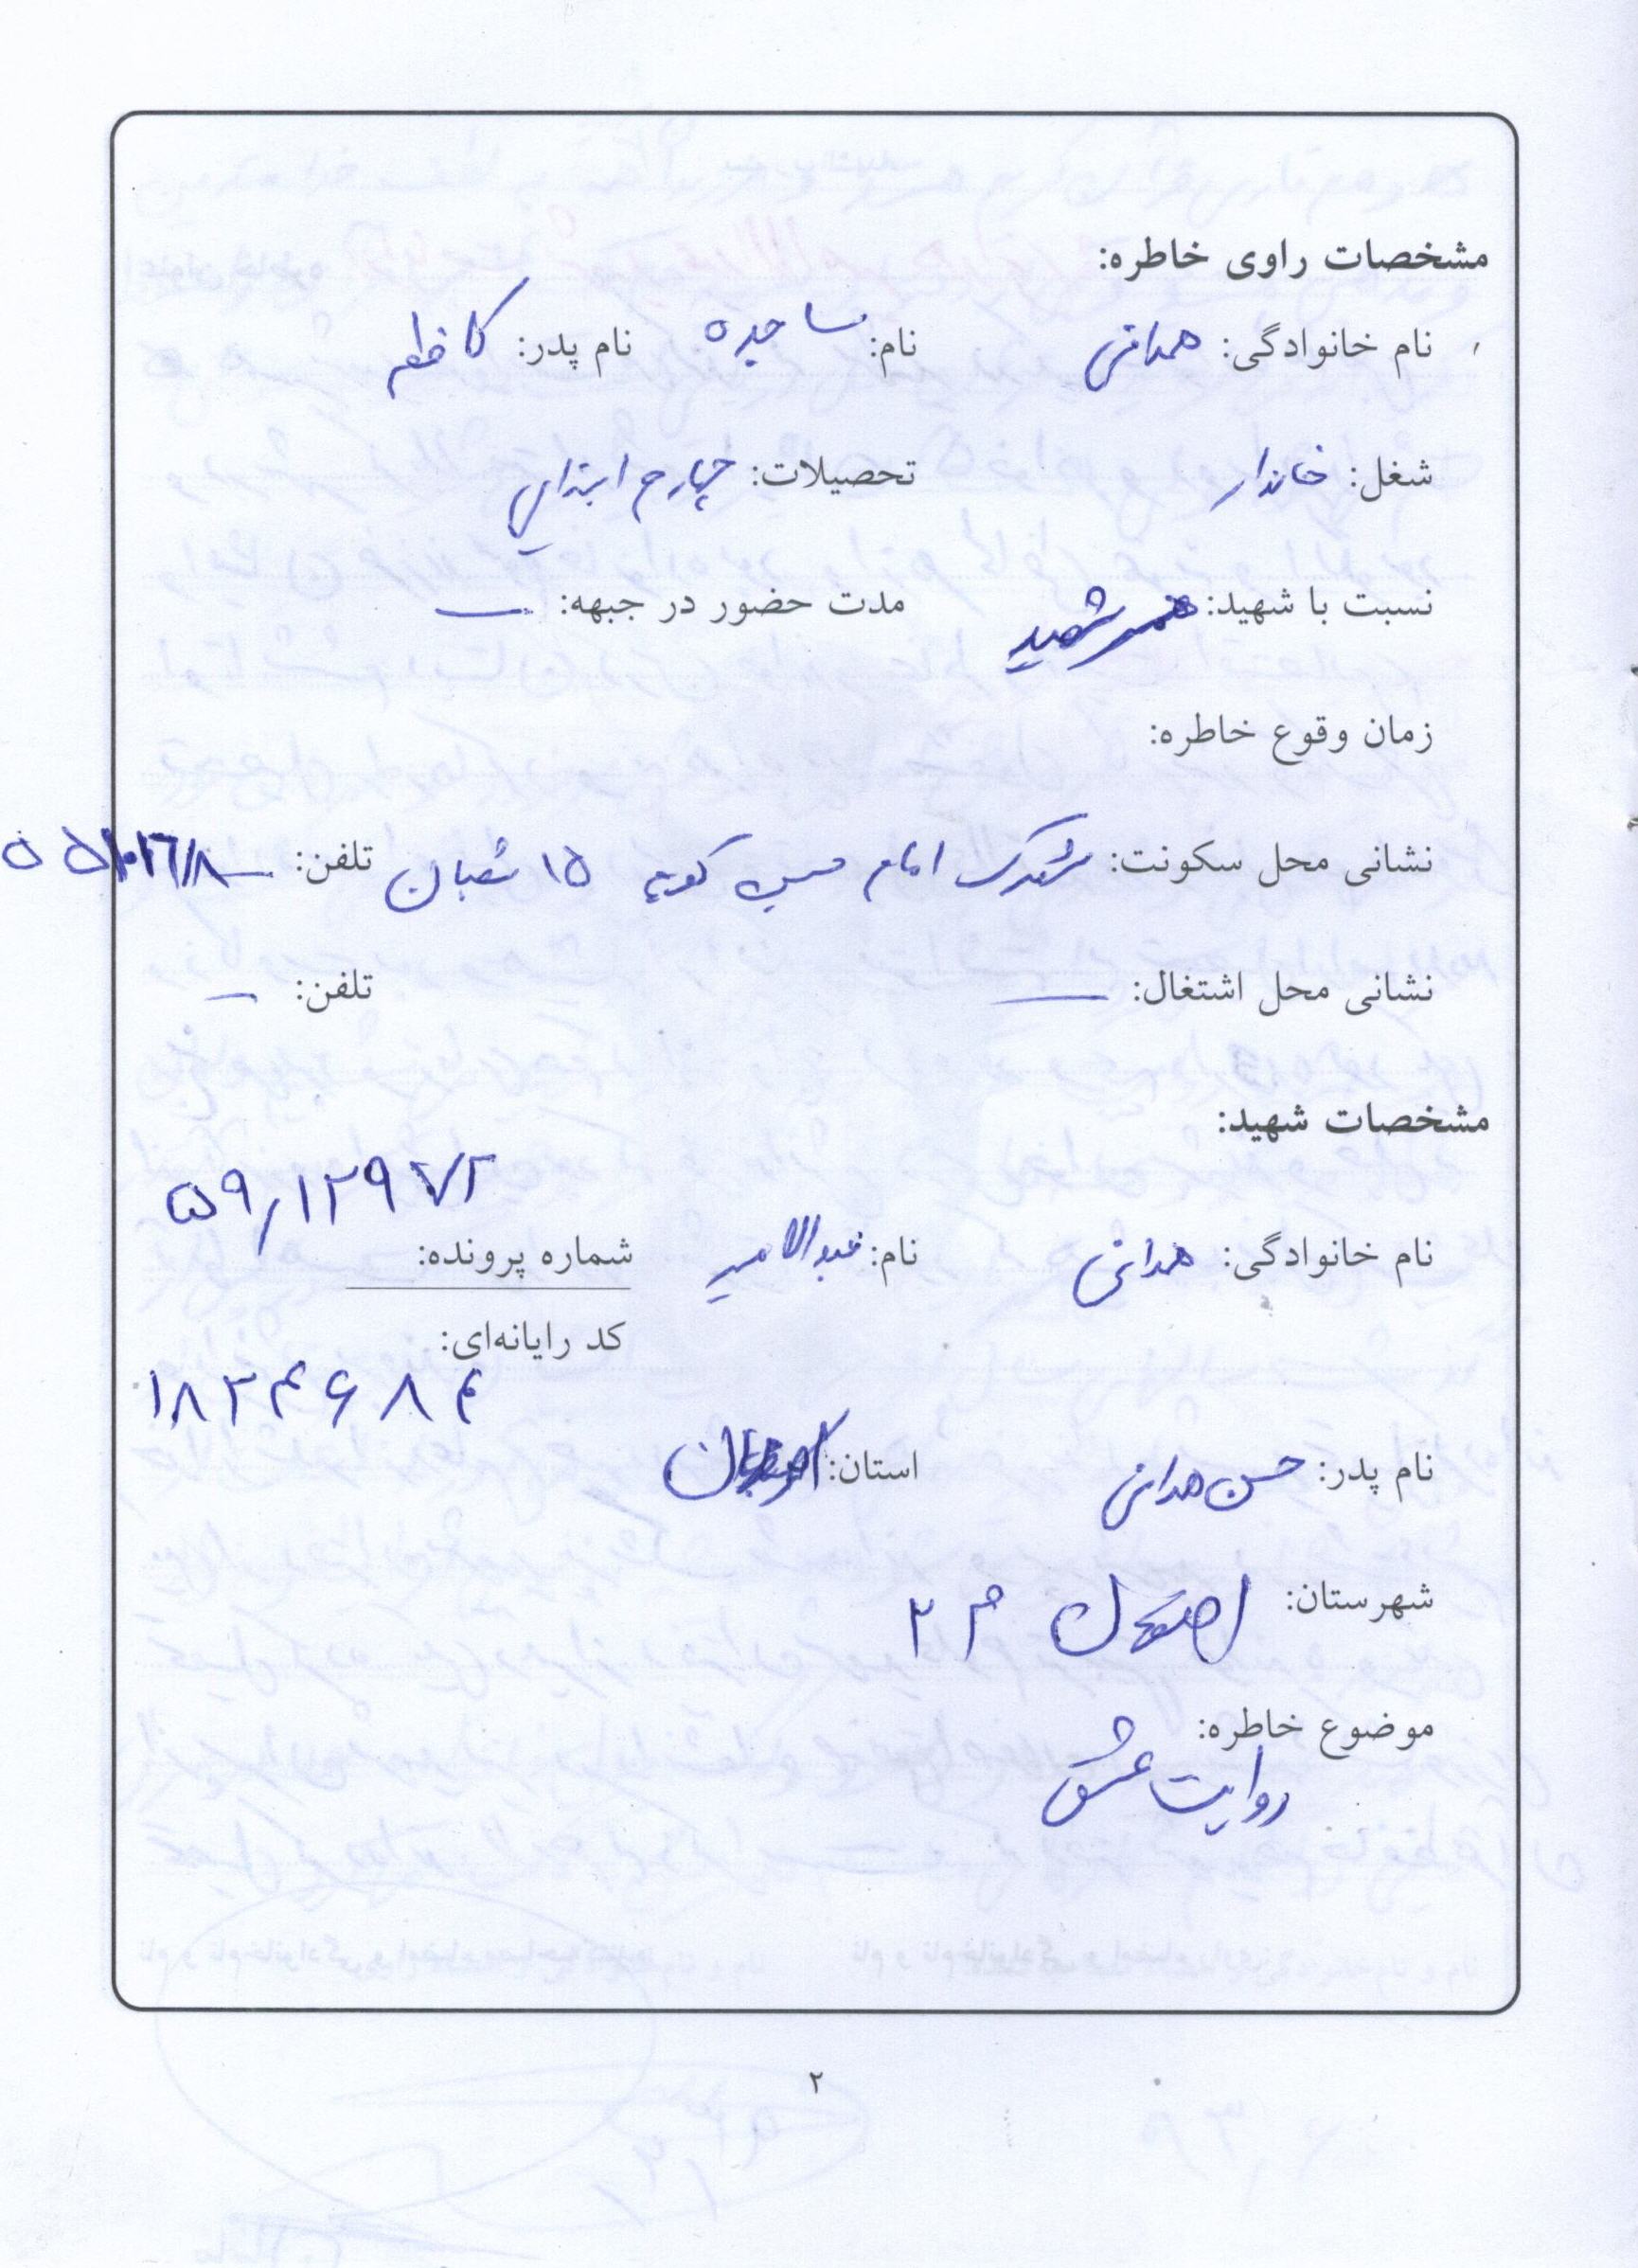 مشخصات راوی خاطره:
نام خانوادگی: همدانی نام: ساجده نام پدر: کاظم
شغل: خاندار تحصیلات: چهارم ابتدایی
نسبت با شهید: همسر شهید مدت حضور در جبهه: —
زمان وقوع خاطره:
نشانی محل سکونت: شهرک امام حسین کوچه ۱۵ شعبان تلفن:
نشانی محل اشتغال: — تلفن: —
مشخصات شهید:
۵۹/۱۲۹۷۲
نام خانوادگی: همدانی نام: عبدالامیر شماره پرونده:
کد رایانه‌ای:
۱۸۲۴۶۸۴
نام پدر: حسن همدانی استان: اصفهان
شهرستان: اصفهان م ۲
موضوع خاطره:
روایت عشق
۲